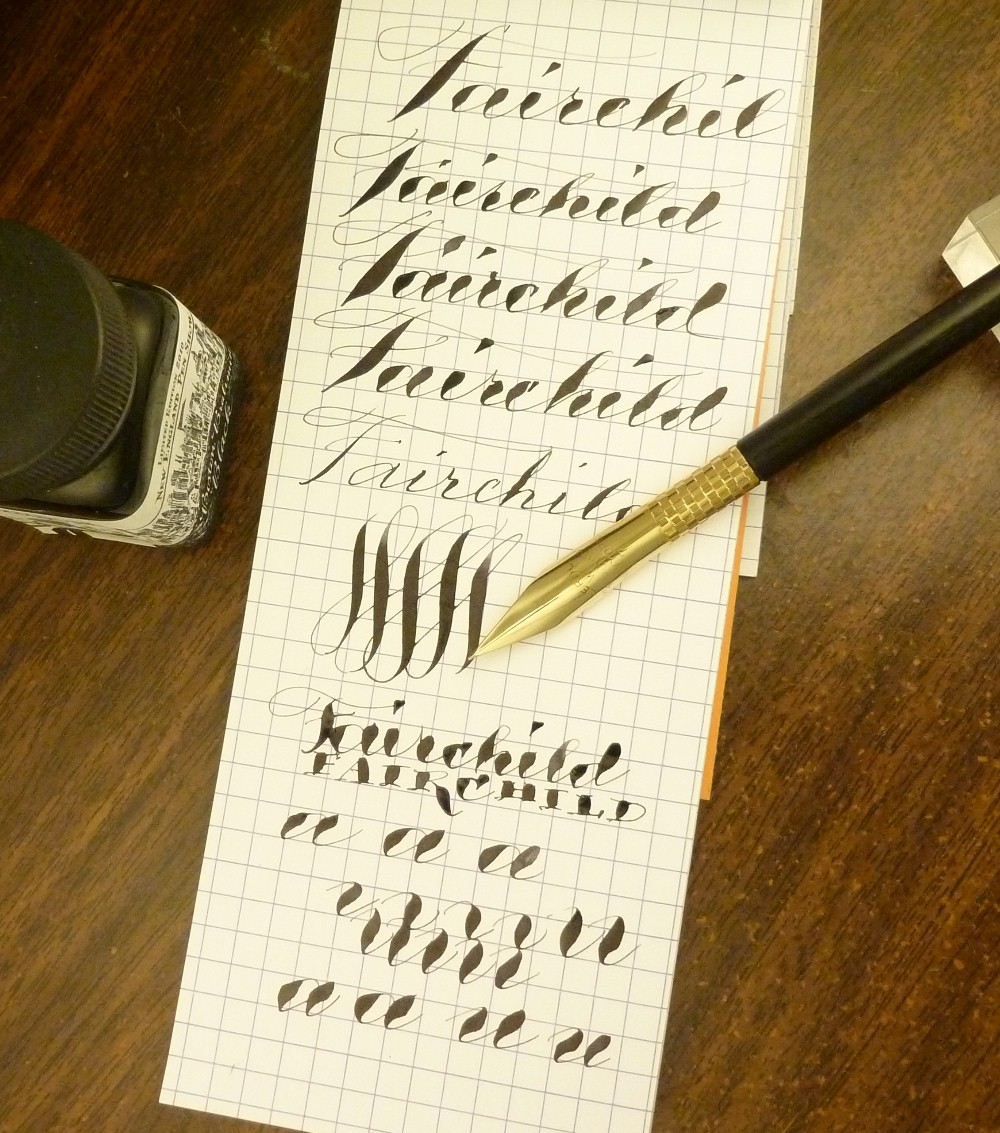 Fairchil
Fairchild
Fairchild
Fairchild
Fairchild
Fairchild
FAIRCHILD